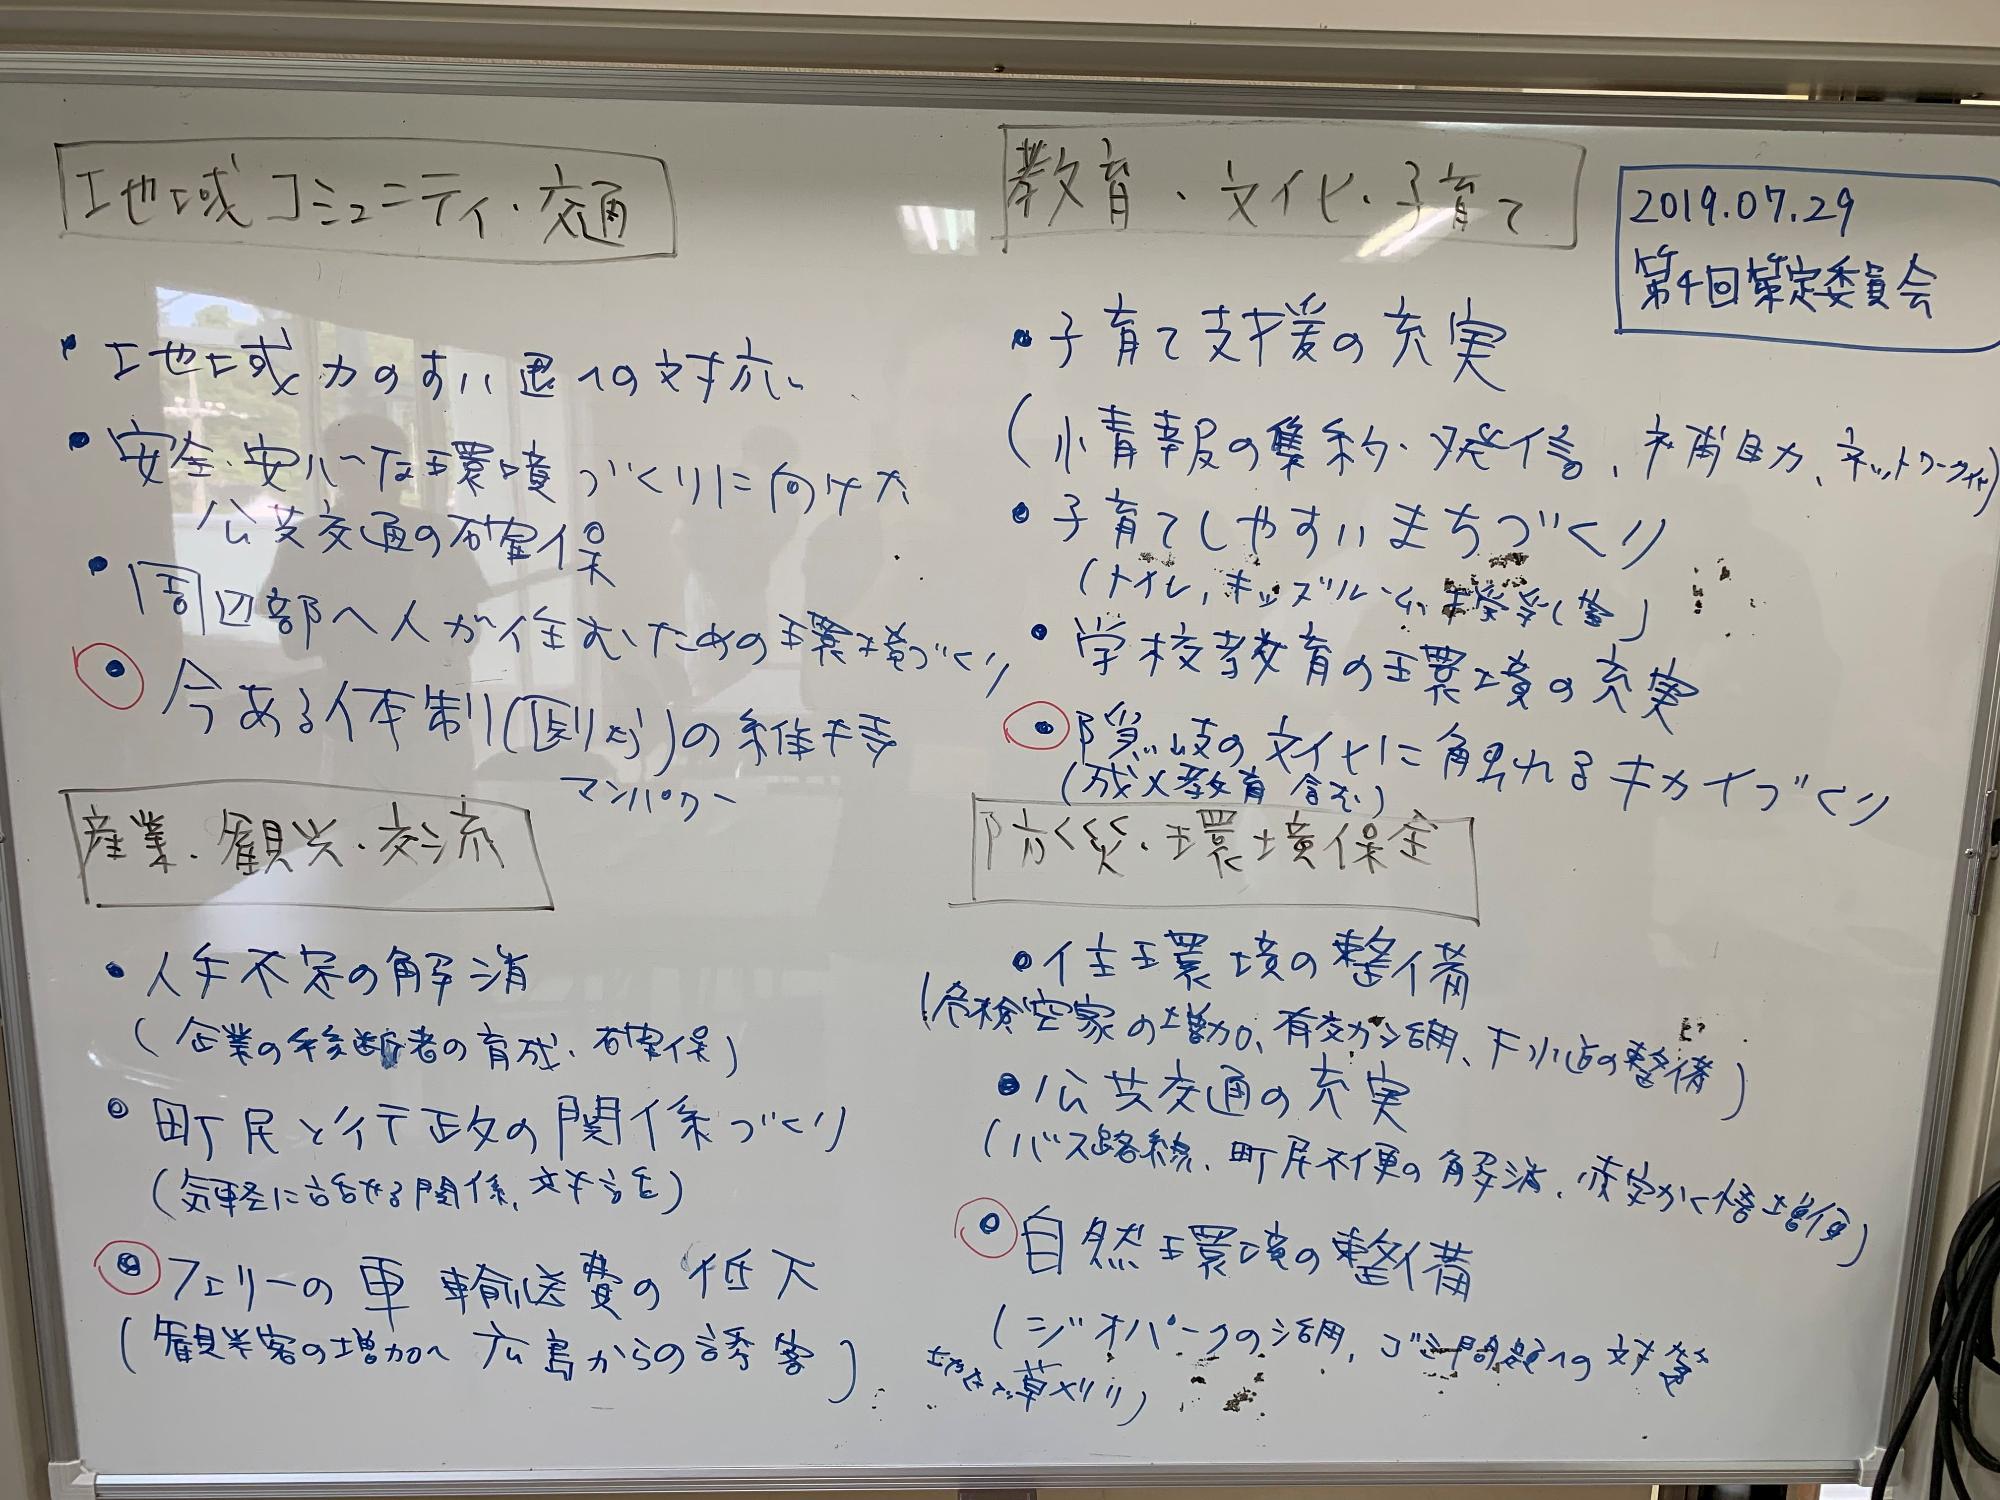 地域コミュニティ・交通
・地域力のすい退への対応
・安全・安心な環境づくりに向けた
公共交通の確保
・周辺部へ人が住むための環境づくり
・今ある体制(区割り)の維持
マンパワー
産業・観光・交流
・人手不足の解消
(企業の後継者の育成・確保)
・町民と行政の関係づくり
(気軽に話せる関係、対話)
・フェリーの車輸送費の低下
(観光客の増加へ 広島からの誘客)
教育・文化・子育て
2019.07.29
第4回策定委員会
・子育て支援の充実
(情報の集約・発信、補助、ネットワーク化)
・子育てしやすいまちづくり
(トイレ、キッズルーム、授乳室)
・学校教育の環境の充実
・隠岐の文化に触れるキカイづくり
(成人教育含む)
防災・環境保全
・住環境の整備
(危険空家の増加、有効活用、下水道の整備)
・公共交通の充実
(バス路線、町民不便の解消、増便)
・自然環境の整備
(ジオパークの活用、ゴミ問題への対策
草刈り)